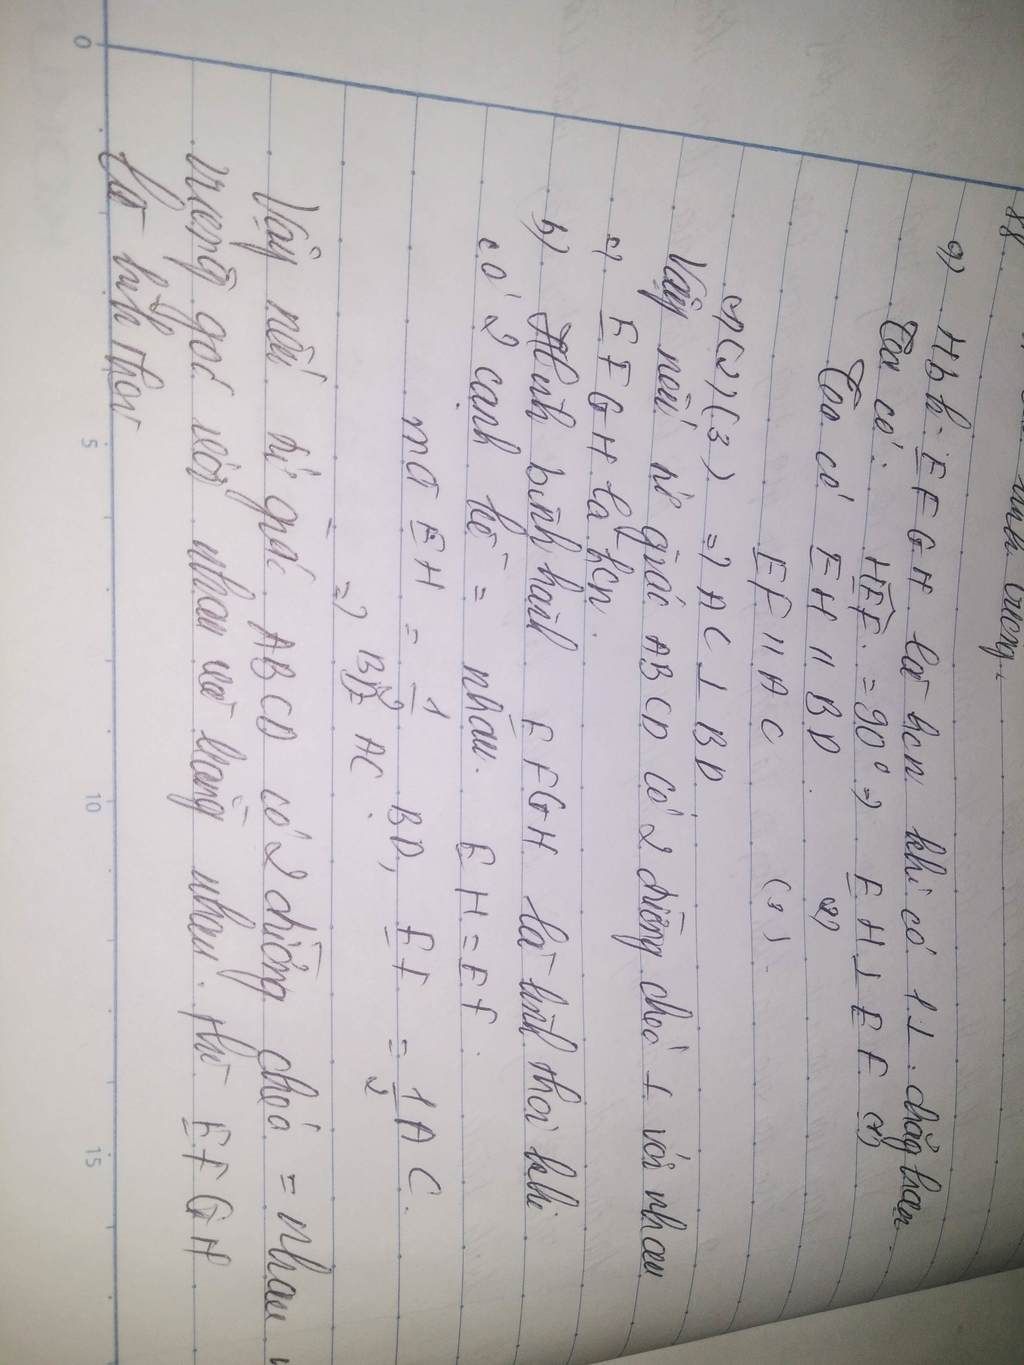 hình vuông.
a) Hbh. EFGH là hcn khi có 1⊥. chẳg hạn
Taa có: HEF = 90° => EH ⊥ EF (1)
Taa có EH // BD 2)
EF // AC (3)
1)(2)(3) => AC ⊥ BD
Vậy nếu tứ giác ABCD có 2 đường chéo ⊥ với nhau
c) EFGH là hcn.
b) Hình bình hành EFGH là hình thoi khi
có 2 cạnh kề = nhau. EH = EF.
mà EH = 1/2 BD, EF = 1/2 AC.
=> BD = AC.
Vậy nếu tứ giác ABCD có 2 đường chéo = nhau
vuông góc với nhau và bằng nhau. thì EFGH
là hình thoi
0 5 10 15